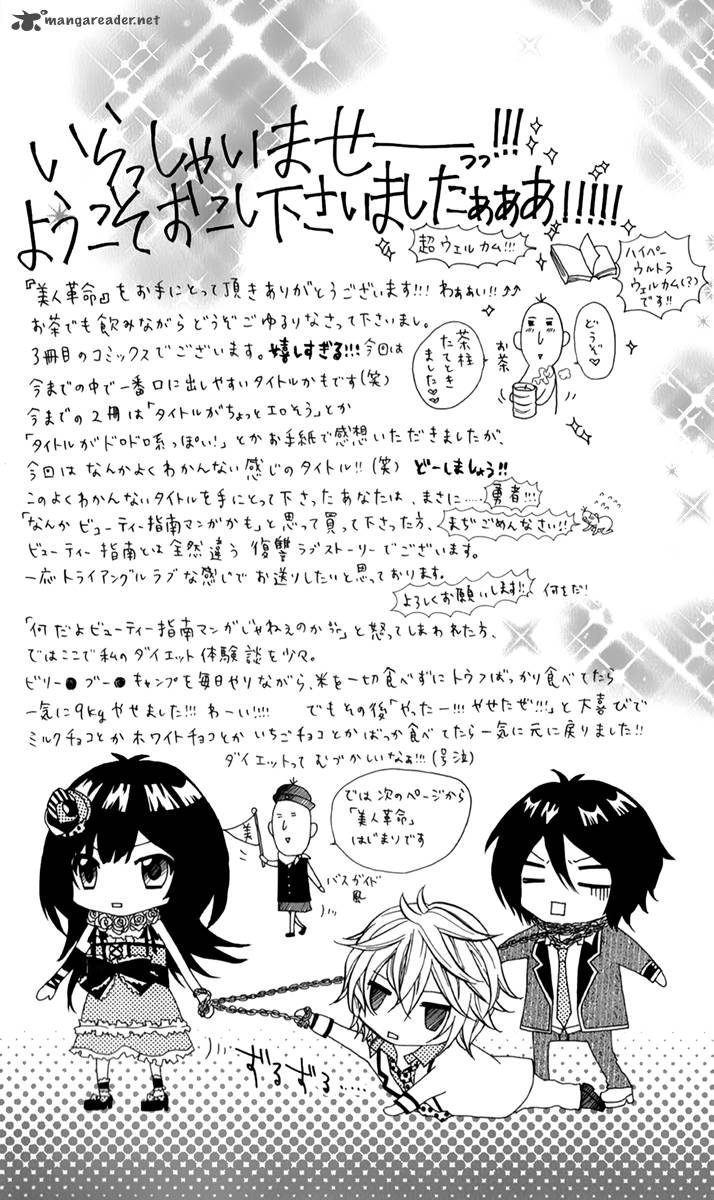 mangareader.net
いらっしゃいませーーっっ!!!
ようこそおこし下さいましたぁぁぁ!!!!!
超ウェルカム!!!
ハイパー
ウルトラ
ウェルカム(?)
です!!
『美人革命』をお手にとって頂きありがとうございます!!! わぁぁい!!
お茶でも飲みながらどうぞごゆるりなさって下さいまし。
どうぞ
お茶
茶柱
たてとき
ました♡
3冊目のコミックスでございます。嬉しすぎる!!! 今回は
今までの中で一番口に出しやすいタイトルかもです(笑)
今までの2冊は「タイトルがちょっとエロそう」とか
「タイトルがドロドロ系っぽい!」とかお手紙で感想いただきましたが、
今回はなんかよくわかんない感じのタイトル!!(笑) どーしましょう!!
このよくわかんないタイトルを手にとって下さったあなたは、まさに……勇者!!!
「なんかビューティー指南マンガかも」と思って買って下さった方、まぢごめんなさい!!
ビューティー指南とは全然違う復讐ラブストーリーでございます。
一応トライアングルラブな感じでお送りしたいと思っております。
よろしくお願いします!! 何をだ!
「何だよビューティー指南マンガじゃねぇのかよ」と怒ってしまわれた方、
ではここで私のダイエット体験談を少々。
ビリー●ブー●キャンプを毎日やりながら、米を一切食べずにトウフばっかり食べてたら
一気に9kgやせました!!! わーい!!!! でもその後「やったー!!! やせたぜ!!!」と大喜びで
ミルクチョコとかホワイトチョコとかいちごチョコとかばっか食べてたら一気に元に戻りました!!
ダイエットってむづかしいなぁ!!!(号泣)
美
では次のページから
「美人革命」
はじまりです
バスガイド
風
ずるずる……